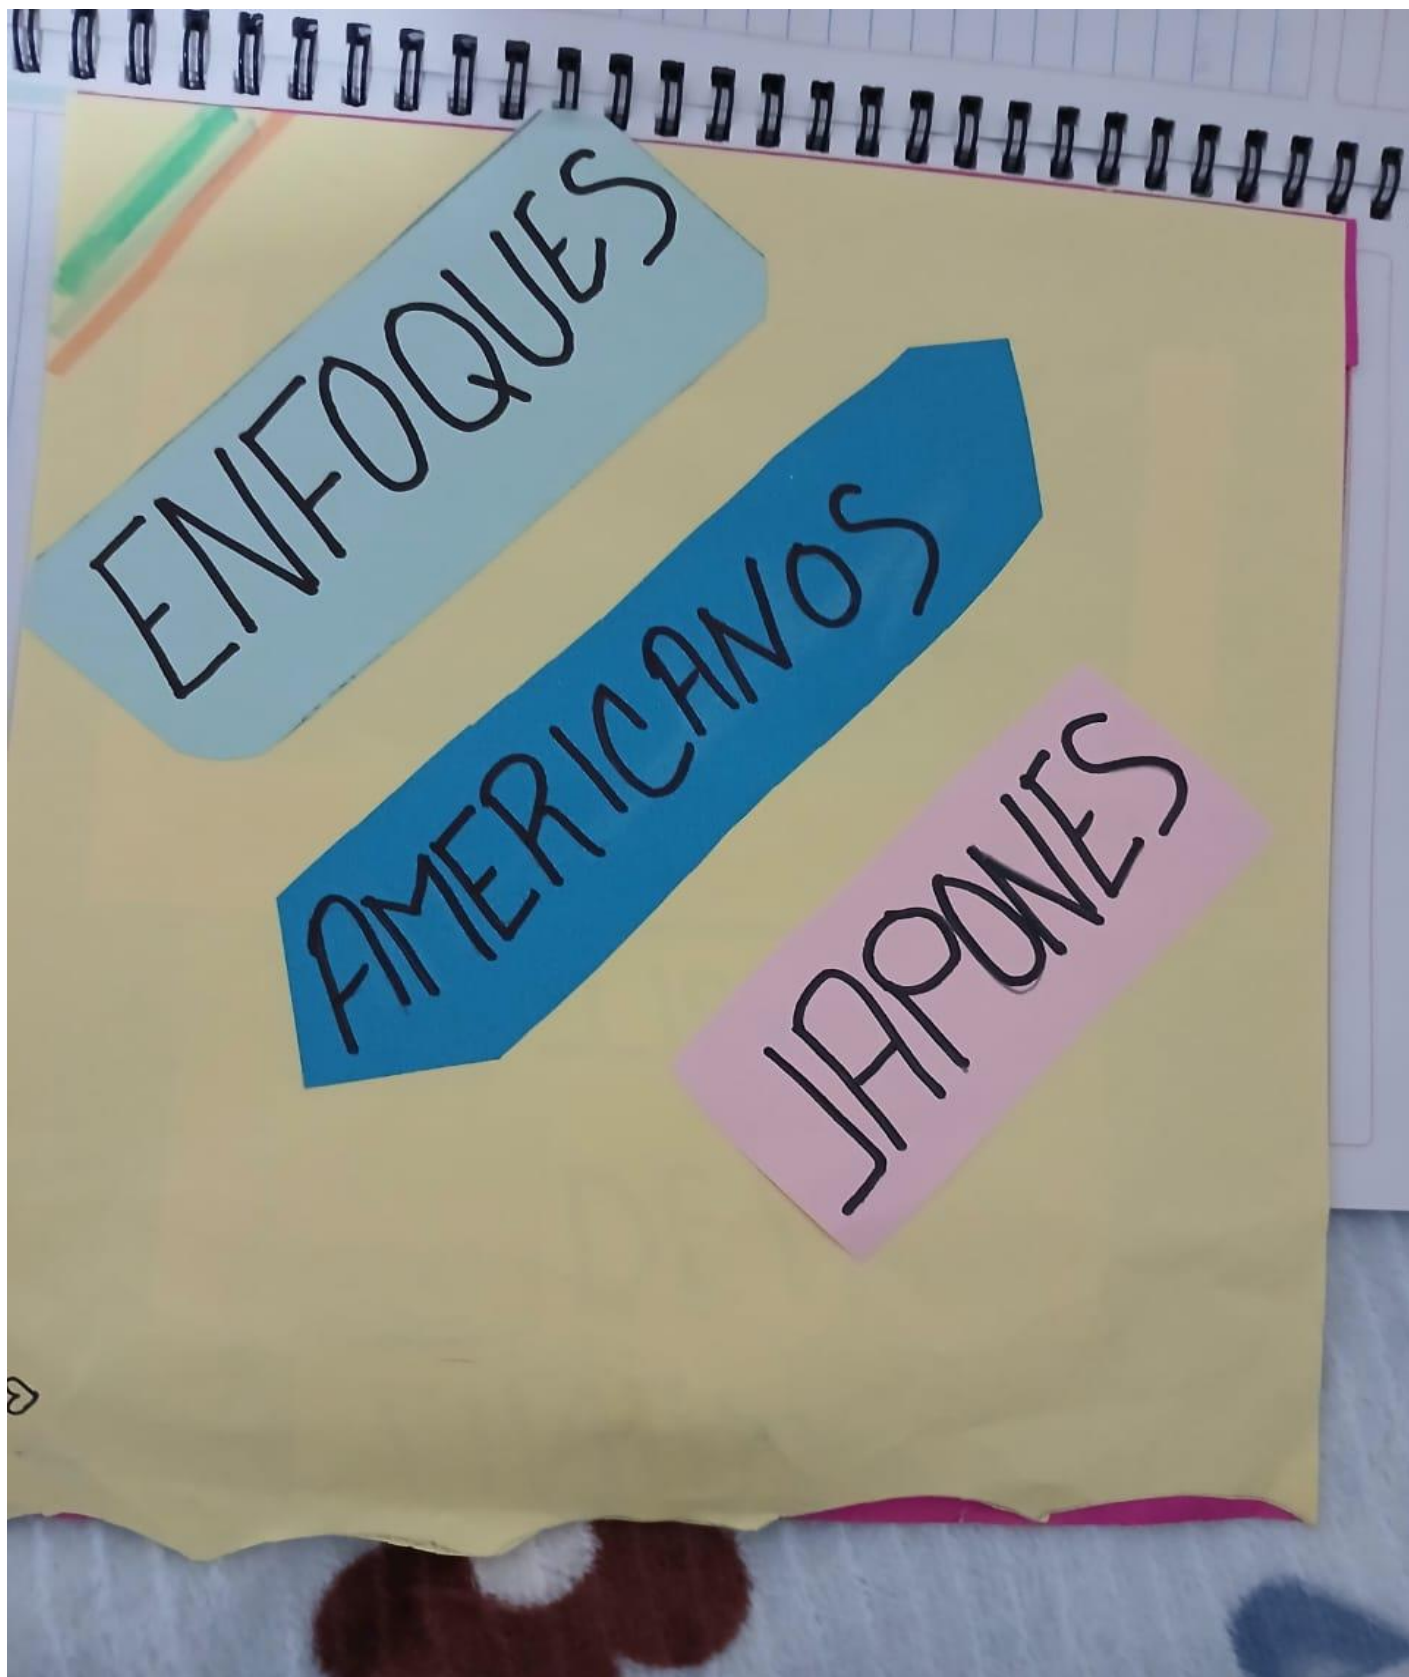 ENFOQUES
AMERICANOS
JAPONES